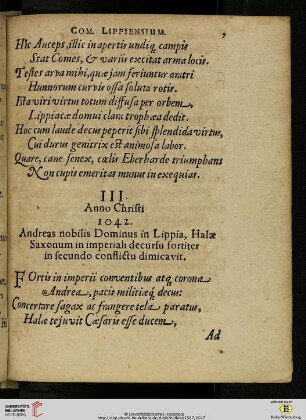 COM. LIPPIENSIUM. 7
HIc Auceps, illic in apertis undiq; campis
Stat Comes, & variis excitat arma locis.
Testes arva mihi, quæ jam feriuntur aratri
Hunnorum curvis ossa soluta rotis.
Ista viri virtus totum diffusa per orbem,
Lippiacæ domui clara trophæa dedit.
Hoc cum laude decus peperit sibi splendida virtus,
Cui durus genitrix est animosa labor.
Quare, cane senex, cœlis Eberharde triumphans
Non cupis emeritas munus in exequias.
III.
Anno Christi
1042.
Andreas nobilis Dominus in Lippia, Halæ
Saxonum in imperiali decursu fortiter
in secundo conflictu dimicavit.
FOrtis in imperii conventibus atq; corona
Andrea, pacis militiæq; decus:
Concertare sagax ac frangere tela paratus,
Halæ te juvit Cæsaris esse ducem,
Ad
UNIVERSITÄTS-
BIBLIOTHEK
HEIDELBERG
© Universitätsbibliothek Heidelberg
Baden-Württemberg